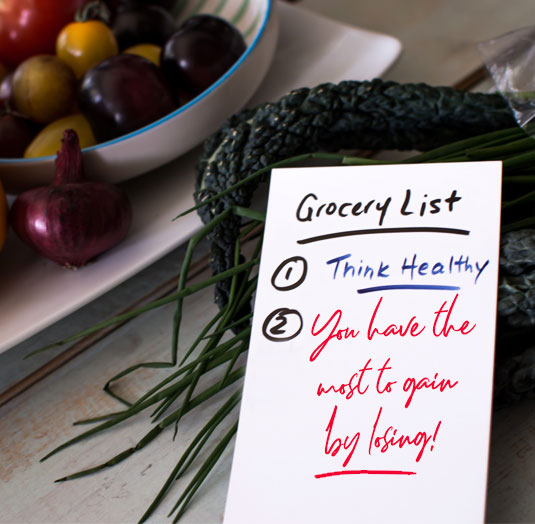 Grocery List
1 Think Healthy
2 You have the
most to gain
by losing!